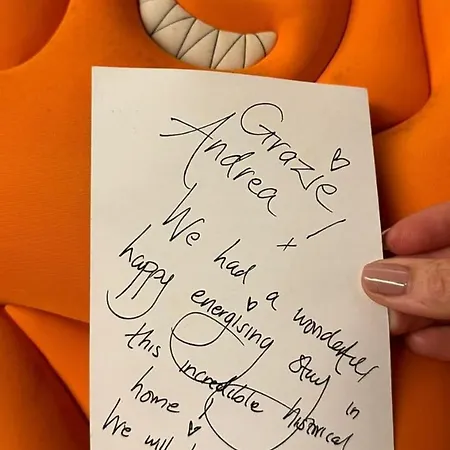 Grazie!
Andrea x
We had a wonderful
happy energising stay in
this incredible historical
home!
We will